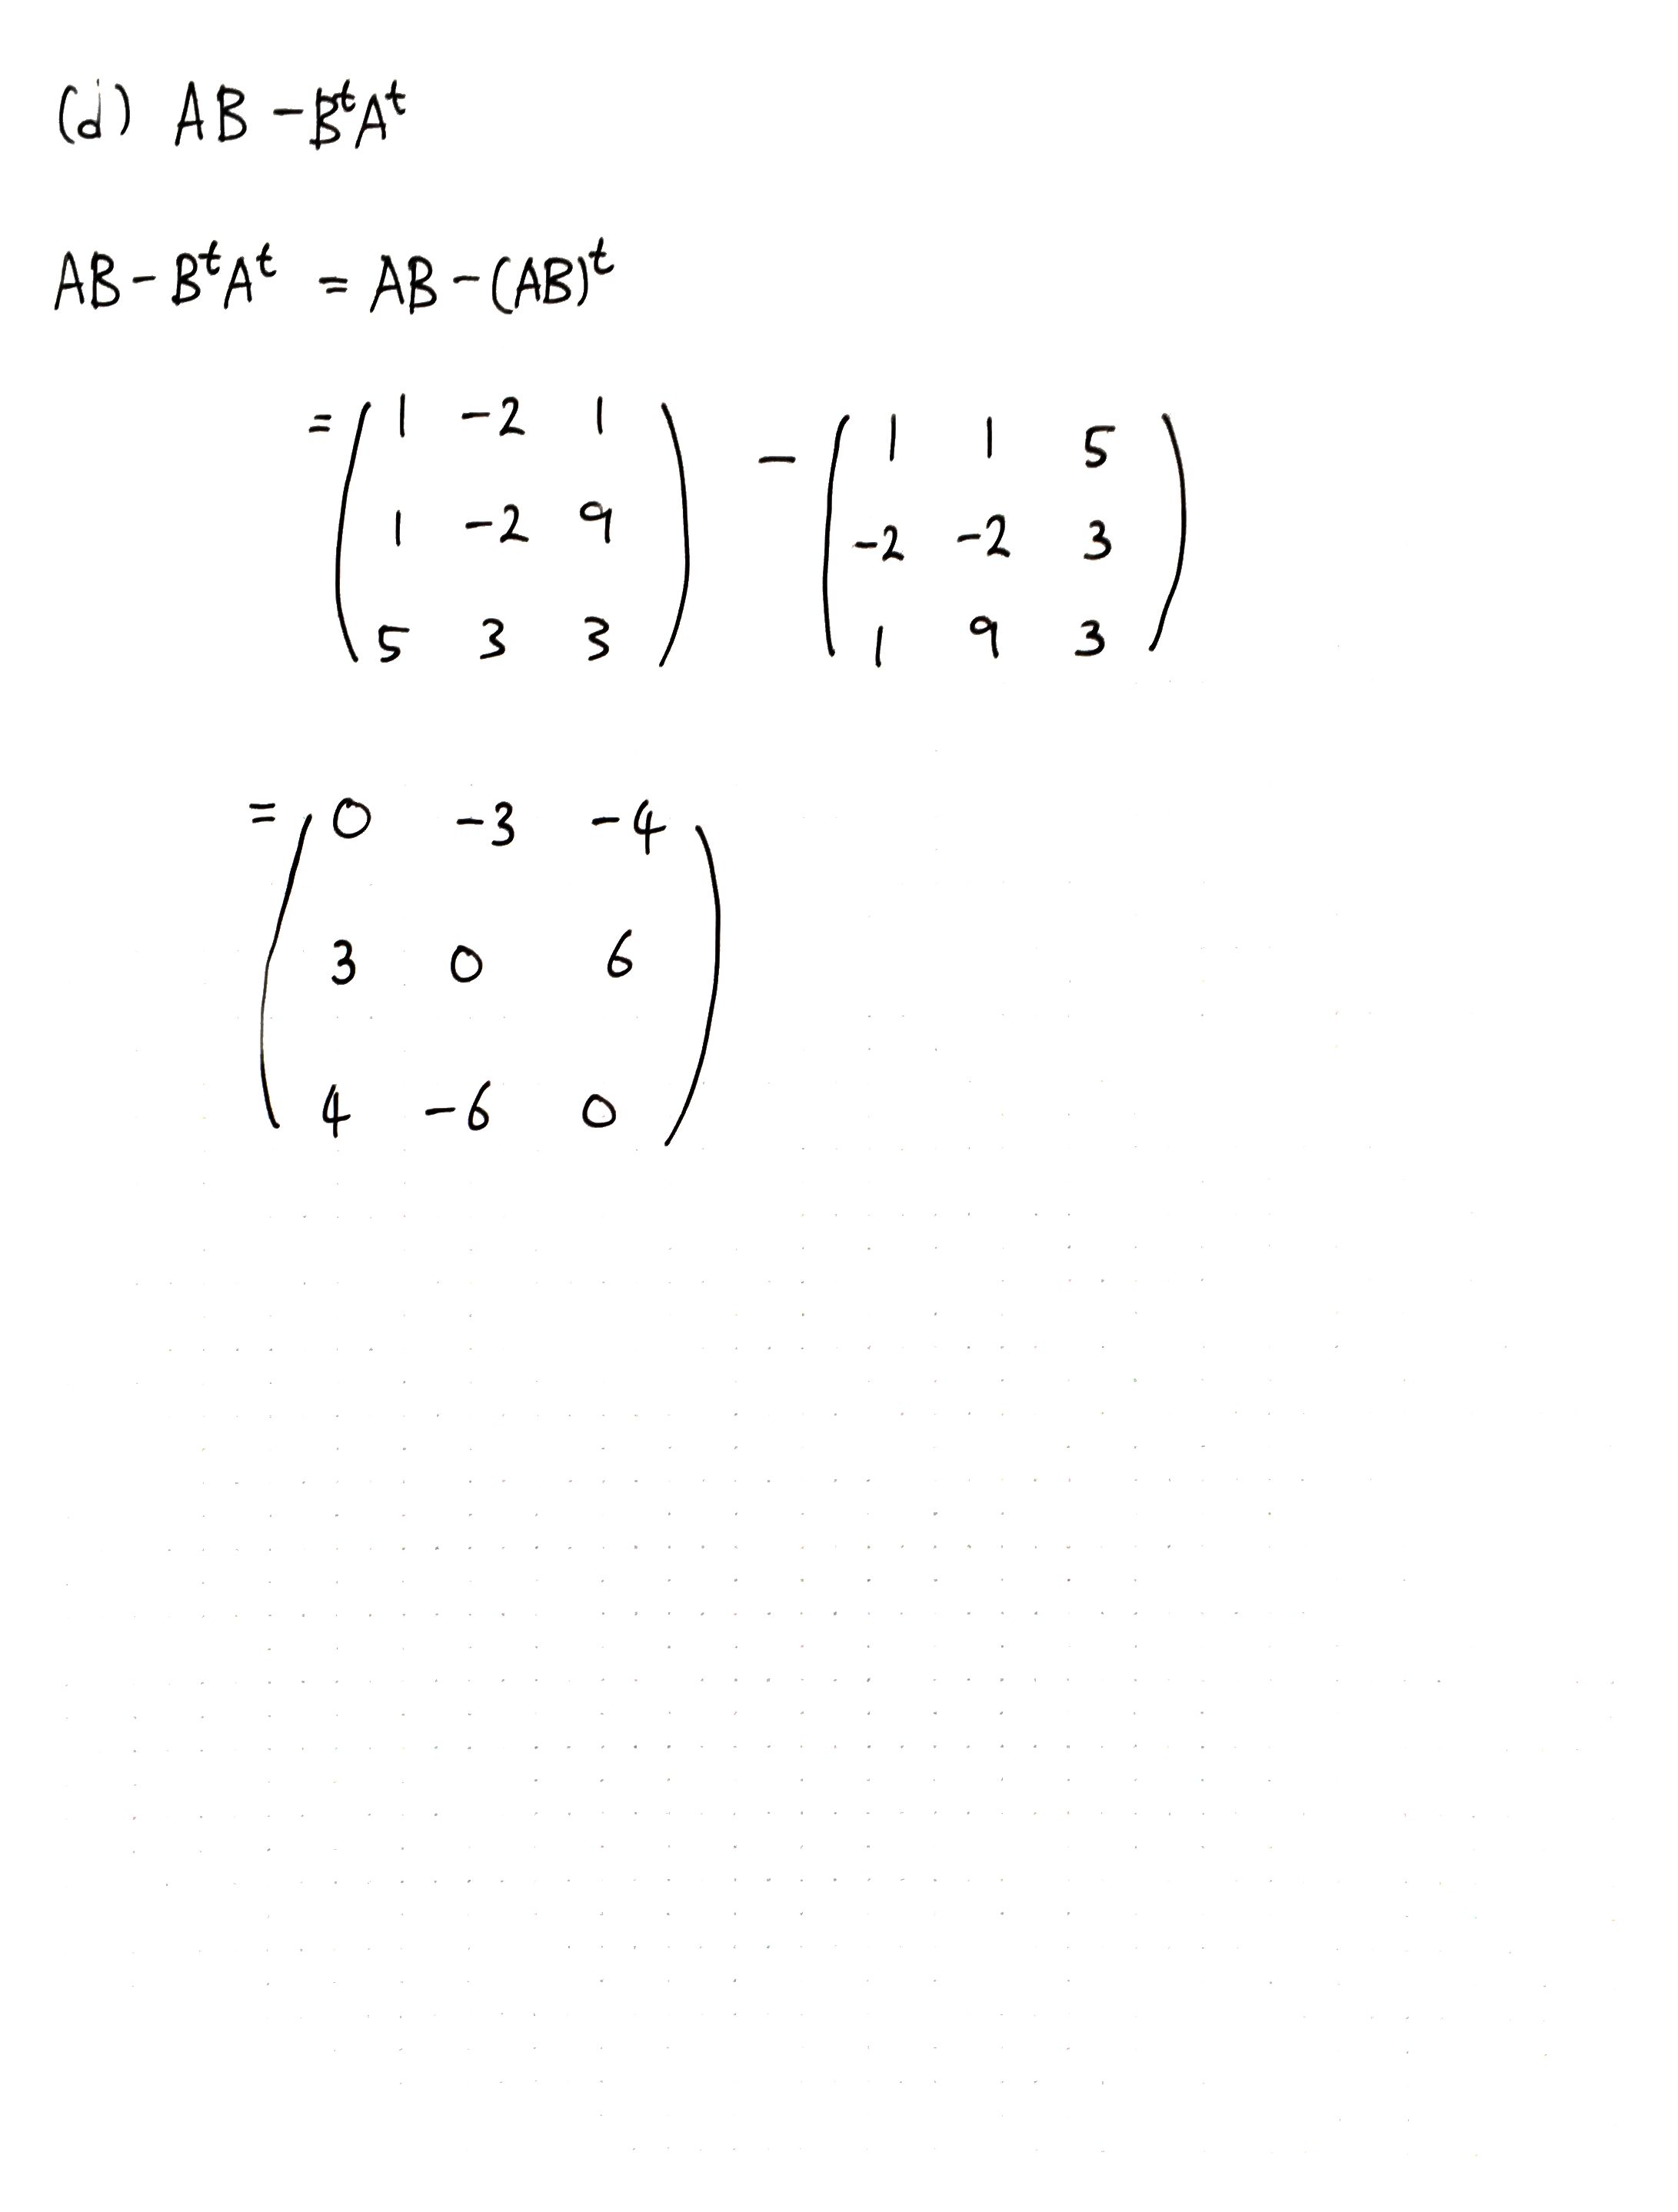 (d) AB - BᵗAᵗ
AB - BᵗAᵗ = AB - (AB)ᵗ
= ( 1 -2 1 ) - ( 1 1 5 )
1 -2 9 -2 -2 3
5 3 3 1 9 3
= ( 0 -3 -4 )
3 0 6
4 -6 0